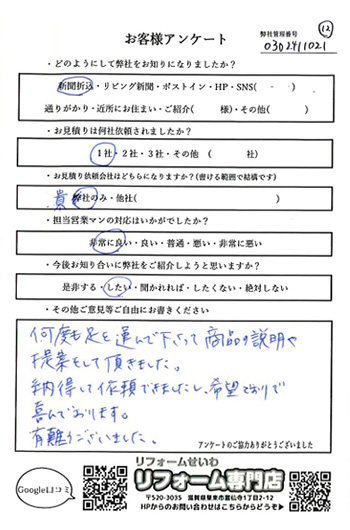 ⑫
お客様アンケート
弊社管理番号
0302411021
・どのようにして弊社をお知りになりましたか?
新聞折込・リビング新聞・ポストイン・HP・SNS( - )
通りがかり・近所にお住まい・ご紹介( 様)・その他( )
・お見積りは何社依頼されましたか?
1社・2社・3社・その他 ( 社)
・お見積り依頼会社はどちらになりますか?(書ける範囲で結構です)
貴 弊社のみ・他社( )
・担当営業マンの対応はいかがでしたか?
非常に良い・良い・普通・悪い・非常に悪い
・今後お知り合いに弊社をご紹介しようと思いますか?
是非する・したい・聞かれれば・したくない・絶対しない
・その他ご意見等ご自由にお書きください
何度も足を運んで下さって商品の説明や
提案をして頂きました。
納得して依頼できましたし、希望どおりで
喜んでおります。
有難うございました。
アンケートのご協力ありがとうございました
Google口コミ
リフォームせいわ
リフォーム専門店
〒520-3035 滋賀県栗東市霊仙寺1丁目2-12
HPからのお問い合わせはこちらからどうぞ